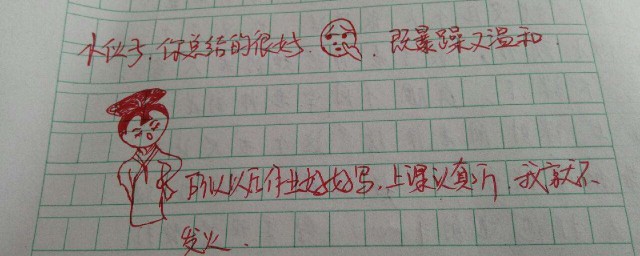 小伙子,你总结的很好. ,既暴躁又温和.
所以以后作业好好写,上课认真听,我就不
发火.